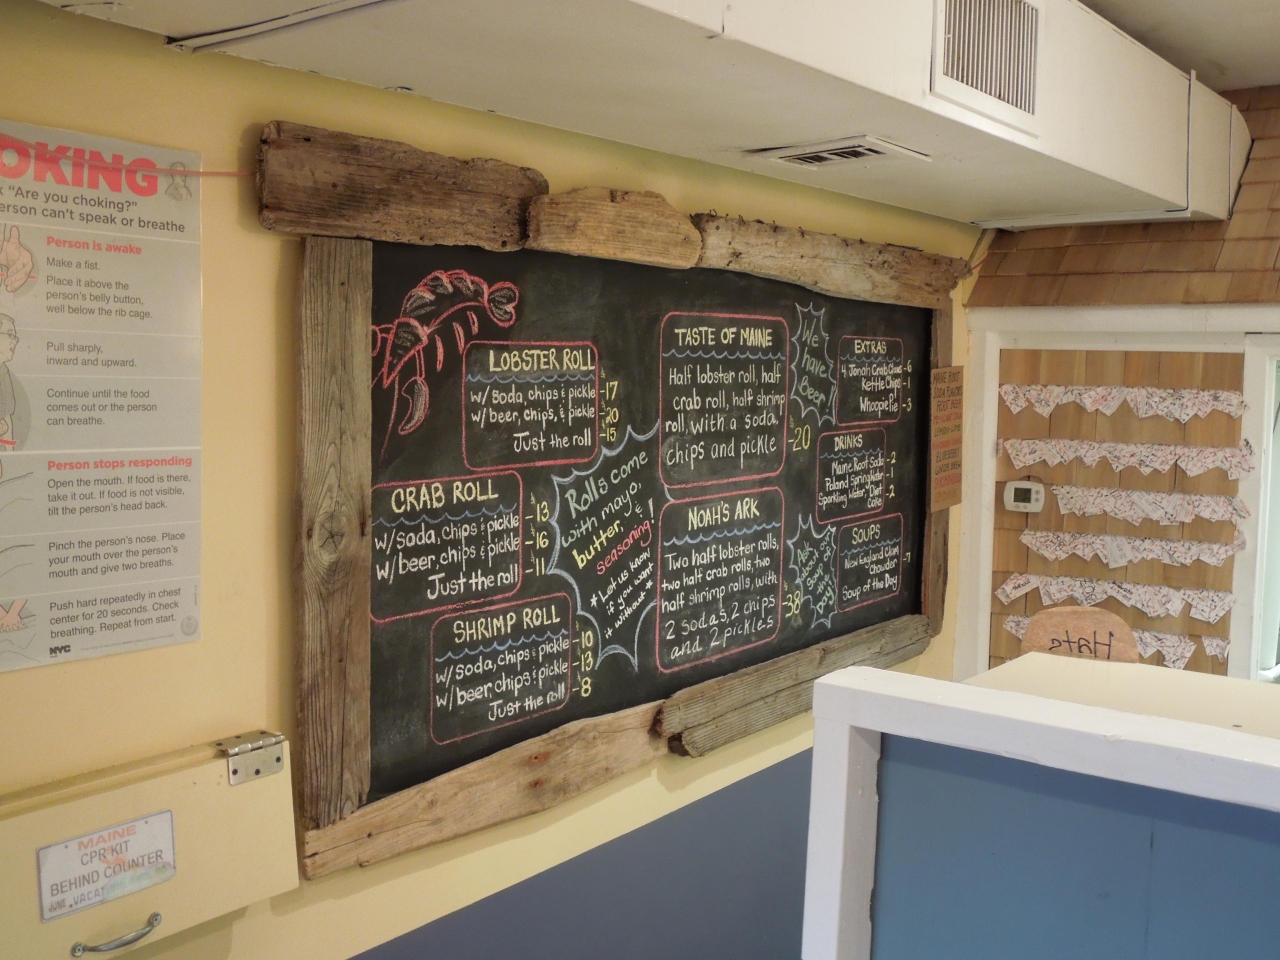 OKING
"Are you choking?"
erson can't speak or breathe
Person is awake
Make a fist.
Place it above the
person's belly button,
well below the rib cage.
Pull sharply,
inward and upward.
Continue until the food
comes out or the person
can breathe.
Person stops responding
Open the mouth. If food is there,
take it out. If food is not visible,
tilt the person's head back.
Pinch the person's nose. Place
your mouth over the person's
mouth and give two breaths.
Push hard repeatedly in chest
center for 20 seconds. Check
breathing. Repeat from start.
NYC
MAINE
CPR KIT
BEHIND COUNTER
JUNE
LOBSTER ROLL
w/ soda, chips & pickle -17
w/ beer, chips, & pickle -20
Just the roll -15
CRAB ROLL
w/soda, chips & pickle -13
w/beer, chips & pickle -16
Just the roll -11
SHRIMP ROLL
w/soda, chips & pickle -10
w/beer, chips & pickle -13
Just the roll -8
Rolls come
with mayo,
butter, &
seasoning!
* Let us know
if you want
it without *
TASTE OF MAINE
Half lobster roll, half
crab roll, half shrimp
roll, with a soda,
chips and pickle -20
NOAH'S ARK
Two half lobster rolls,
two half crab rolls, two
half shrimp rolls, with
2 sodas, 2 chips -38
and 2 pickles
We
have
Beer
EXTRAS
4 Jonah Crab Claws -6
Kettle Chips -1
Whoopie Pie -3
DRINKS
Maine Root Soda -2
Poland Spring Water -1
Sparkling Water, Diet -2
Coke
SOUPS
New England Clam -7
Chowder
Soup of the Day
Ask
about our
soup
of the
Day!
MAINE ROOT
ROOT BEER
BLUEBERRY
Hate